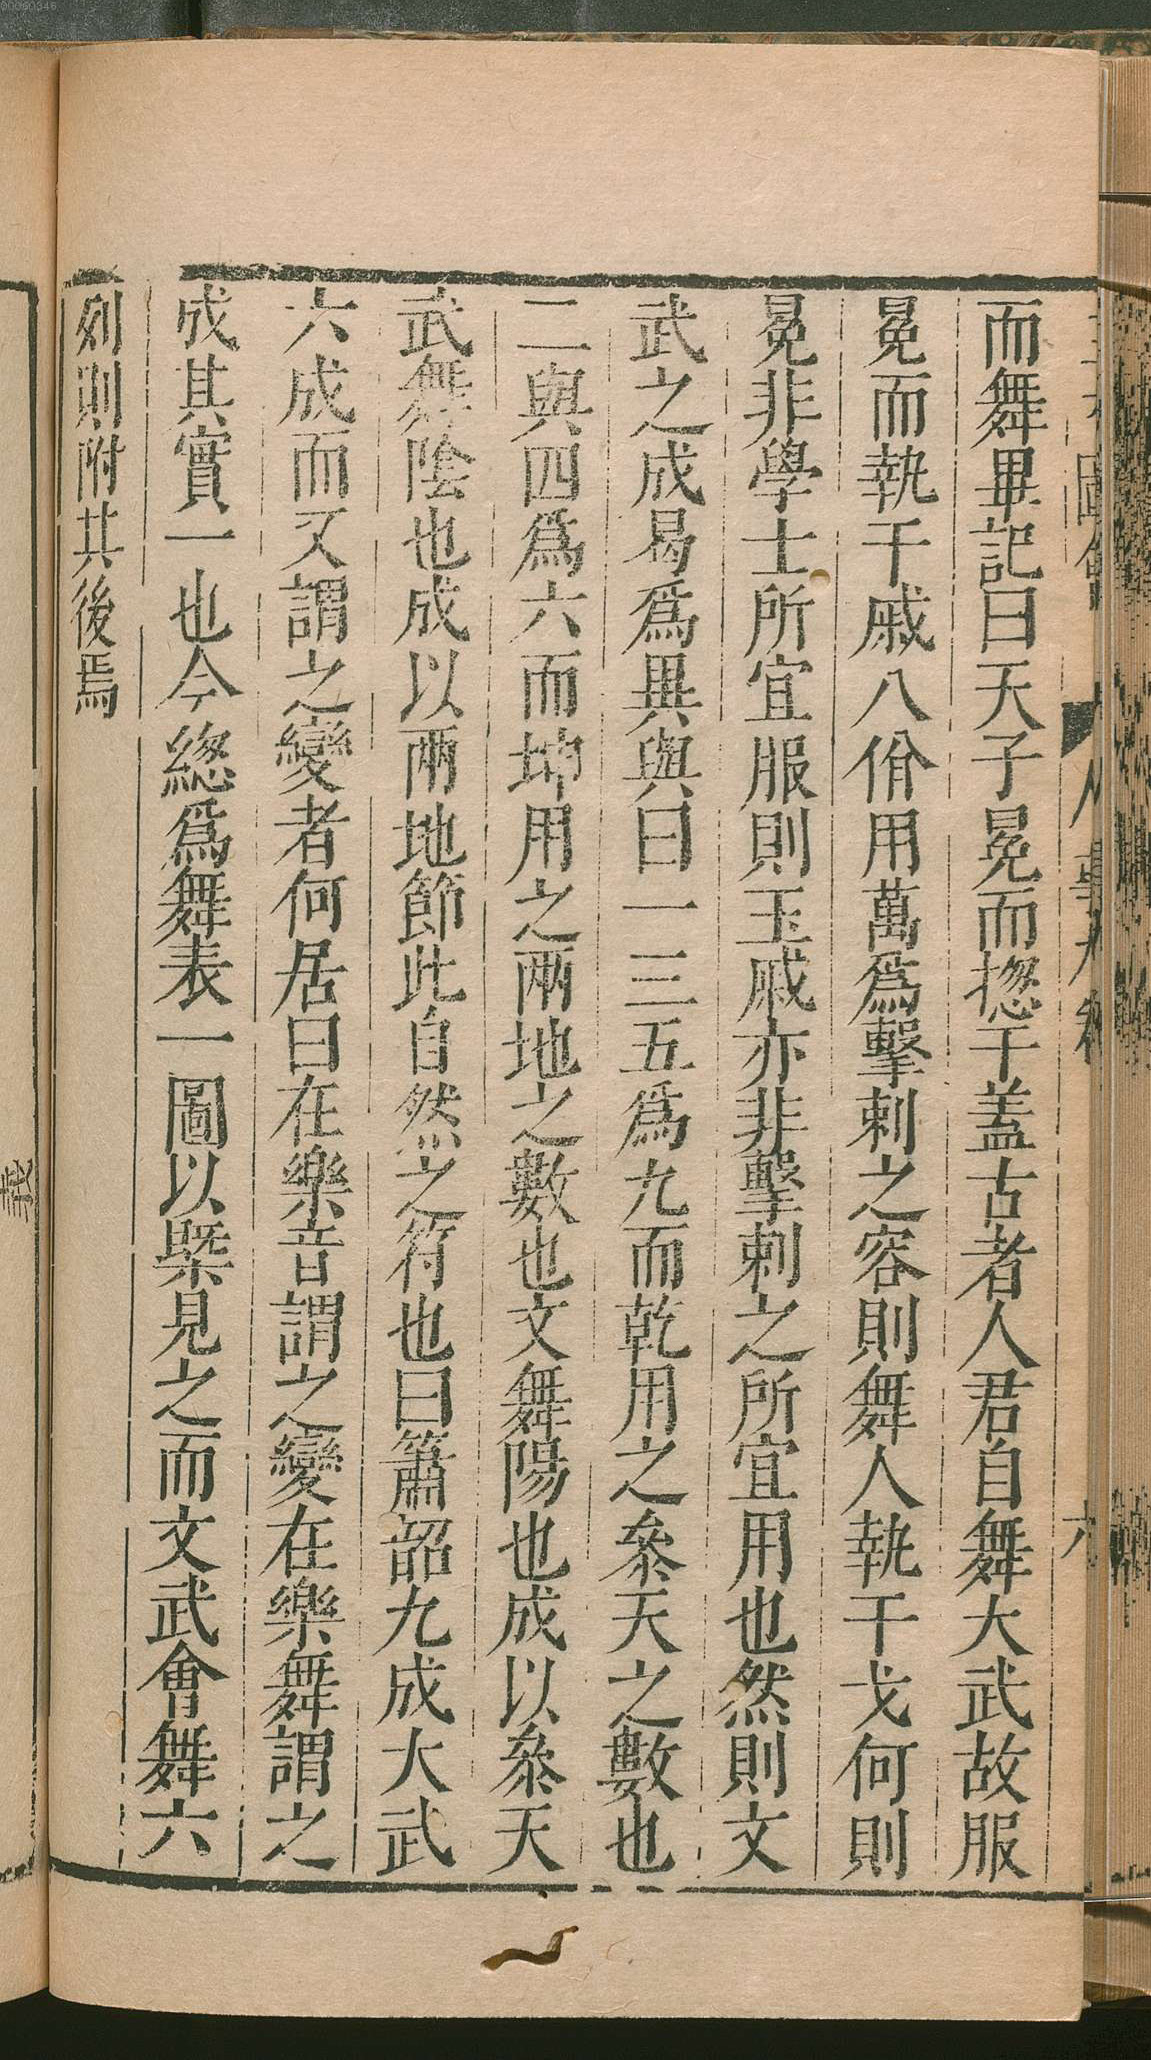 而舞畢記曰天子冕而揔干蓋古者人君自舞大武故服
冕而執干戚八佾用萬爲擊刺之容則舞人執干戈何則
冕非學士所宜服則玉戚亦非擊刺之所宜用也然則文
武之成曷爲異與曰一三五爲九而乾用之叅天之數也
二與四爲六而坤用之兩地之數也文舞陽也成以叅天
武舞陰也成以兩地節此自然之符也曰簫韶九成大武
六成而又謂之變者何居曰在樂音謂之變在樂舞謂之
成其實一也今緫爲舞表一圖以槩見之而文武會舞六
列則附其後焉
圖會
人事九卷
六
00000346